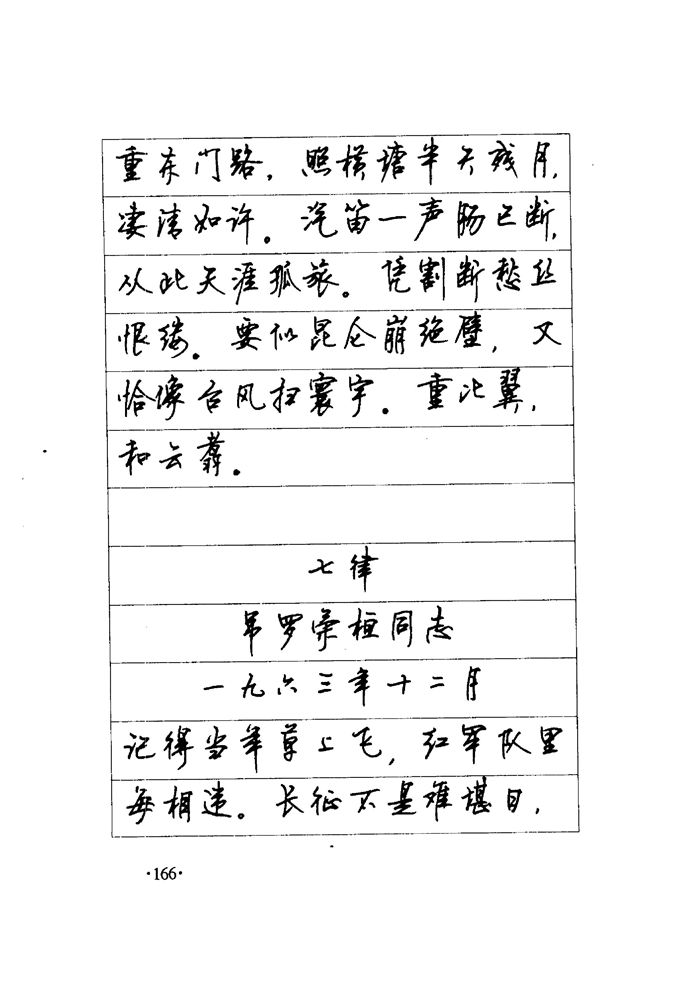 重东门路，照横塘半天残月，
凄清如许。汽笛一声肠已断，
从此天涯孤旅。凭割断愁丝
恨缕。要似昆仑崩绝壁，又
恰像台风扫寰宇。重比翼，
和云翥。
七律
吊罗荣桓同志
一九六三年十二月
记得当年草上飞，红军队里
每相违。长征不是难堪日，
·166·